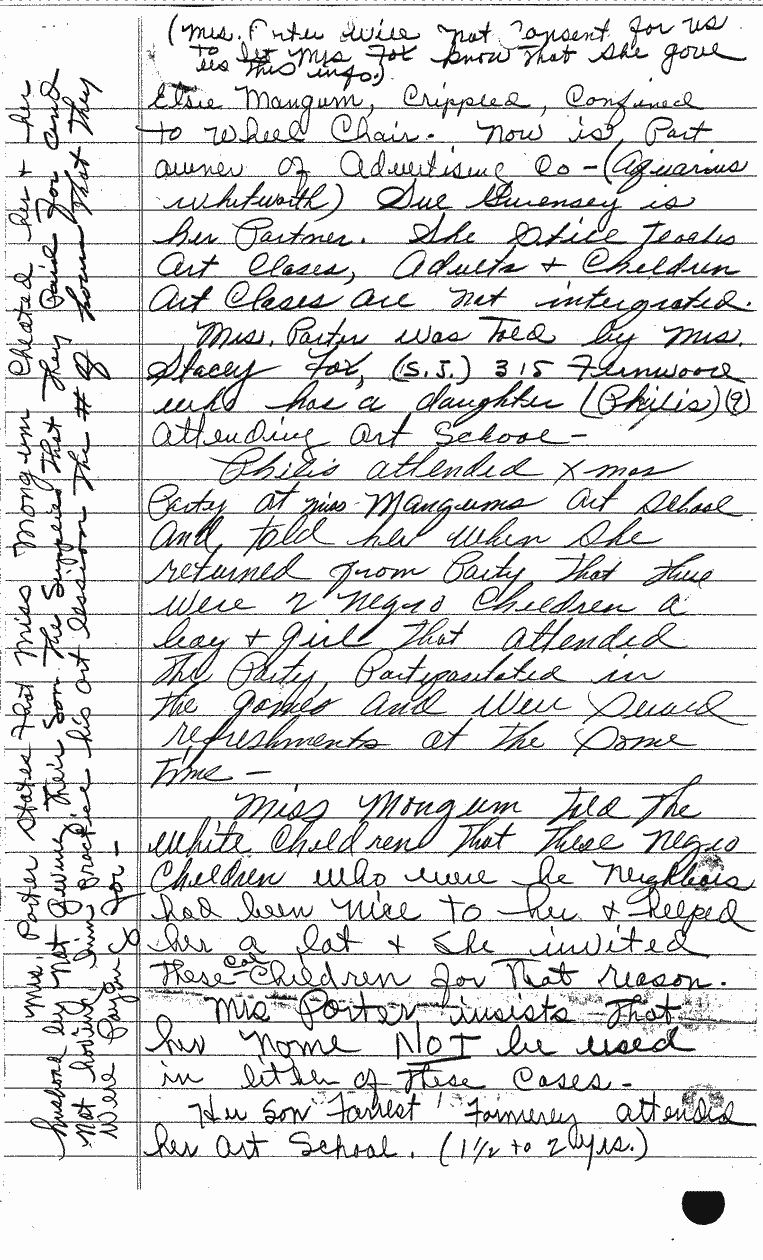 (Mrs. Porter will not consent for us
to let Mrs Fox know that she gave
us this info.)
Elsie Mangum, Crippled, Confined
to Wheel Chair. Now is Part
owner of Advertising Co - (Aquarius
Whitworth) Sue Guensey is
her Partner. She still Teaches
Art Clases, Adults + Children
Art Clases are not intergrated.
Mrs. Porter was Told by Mrs.
Stacey Fox, (S.J.) 315 Fernwood
who has a daughter (Philis)(9)
attending Art School -
Philis attended Xmas
Party at Miss Mangums art school
and told her when she
returned from Party that there
were 2 Negro Children a
boy + girl that attended
the Party, Partipasitated in
the games and were served
refreshments at the same
time -
Miss Mangum told the
white children that these negro
children who were he neighbors
had been nice to her + helped
her a lot + she invited
these Col Children for that reason.
Mrs Porter insists that
her name NOT be used
in either of these cases -
Her son "Forrest" Formerly attended
her Art School. (1 1/2 to 2 yrs.)
Mrs. Porter states that Miss Mangum Cheated her + her
husband by not giving their son the supplies that they paid for and
not having him practice his art lession the # of hours that they
were paying for -